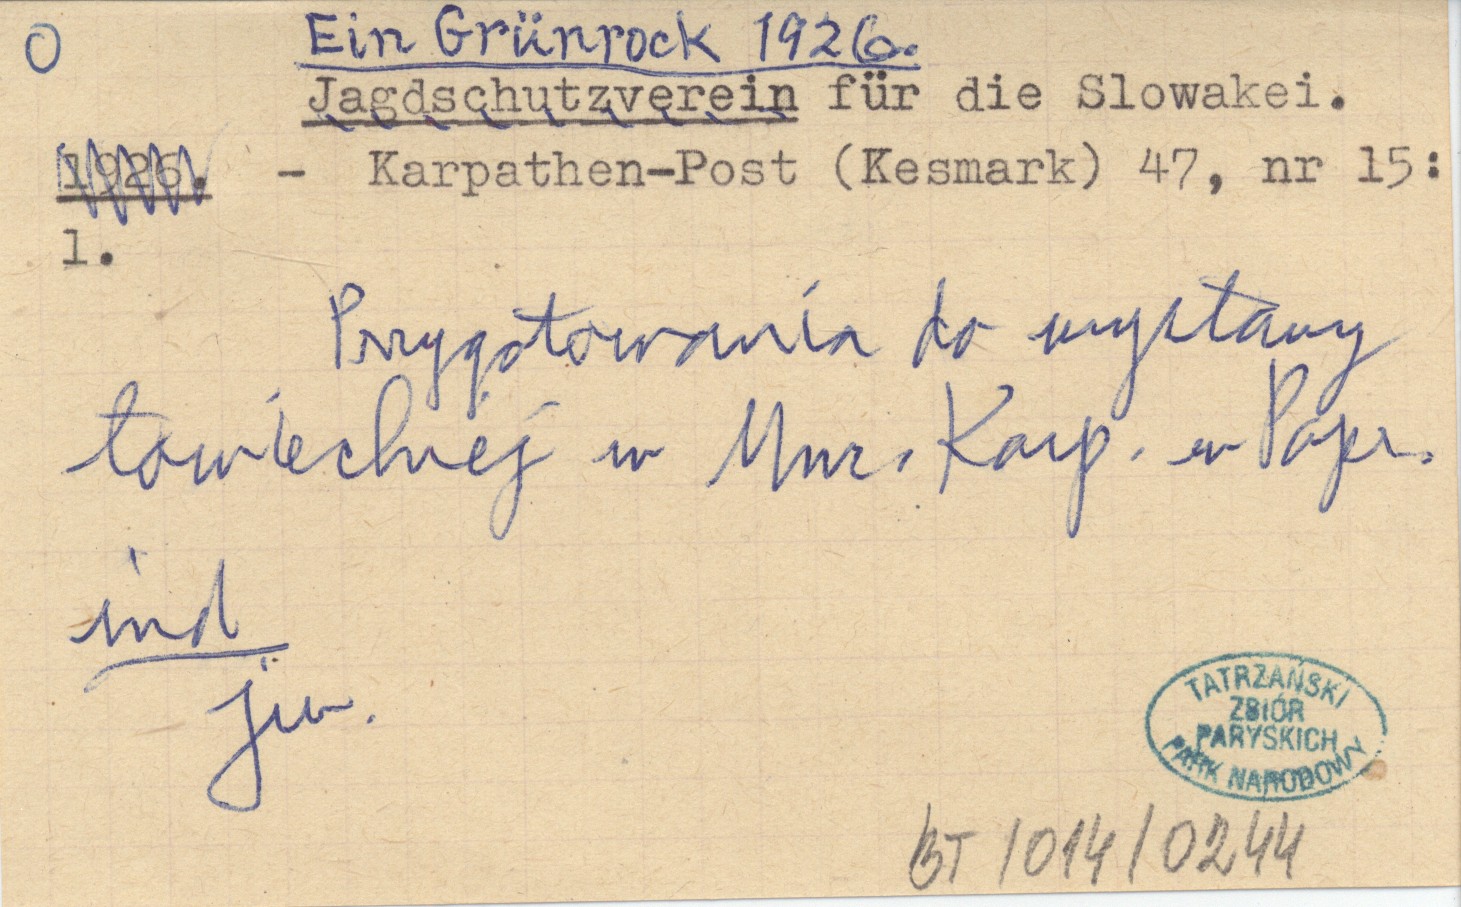 O
Ein Grünrock 1926.
Jagdschutzverein für die Slowakei.
1926. - Karpathen-Post (Kesmark) 47, nr 15:
1.
Przygotowania do wystawy
łowieckiej w Muz. Karp. w Popr.
ind
jw.
TATRZAŃSKI
ZBIÓR
PARYSKICH
PARK NARODOWY
BT/014/0244